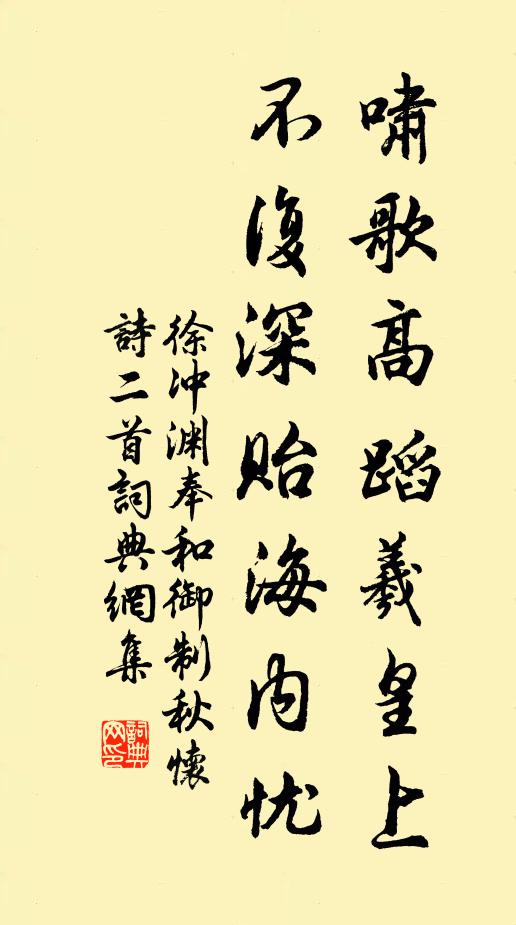 嘯歌高蹈羲皇上
不復深貽海内忧
徐冲渊奉和御制秋懷
詩二首詞典網集
詞典
网印